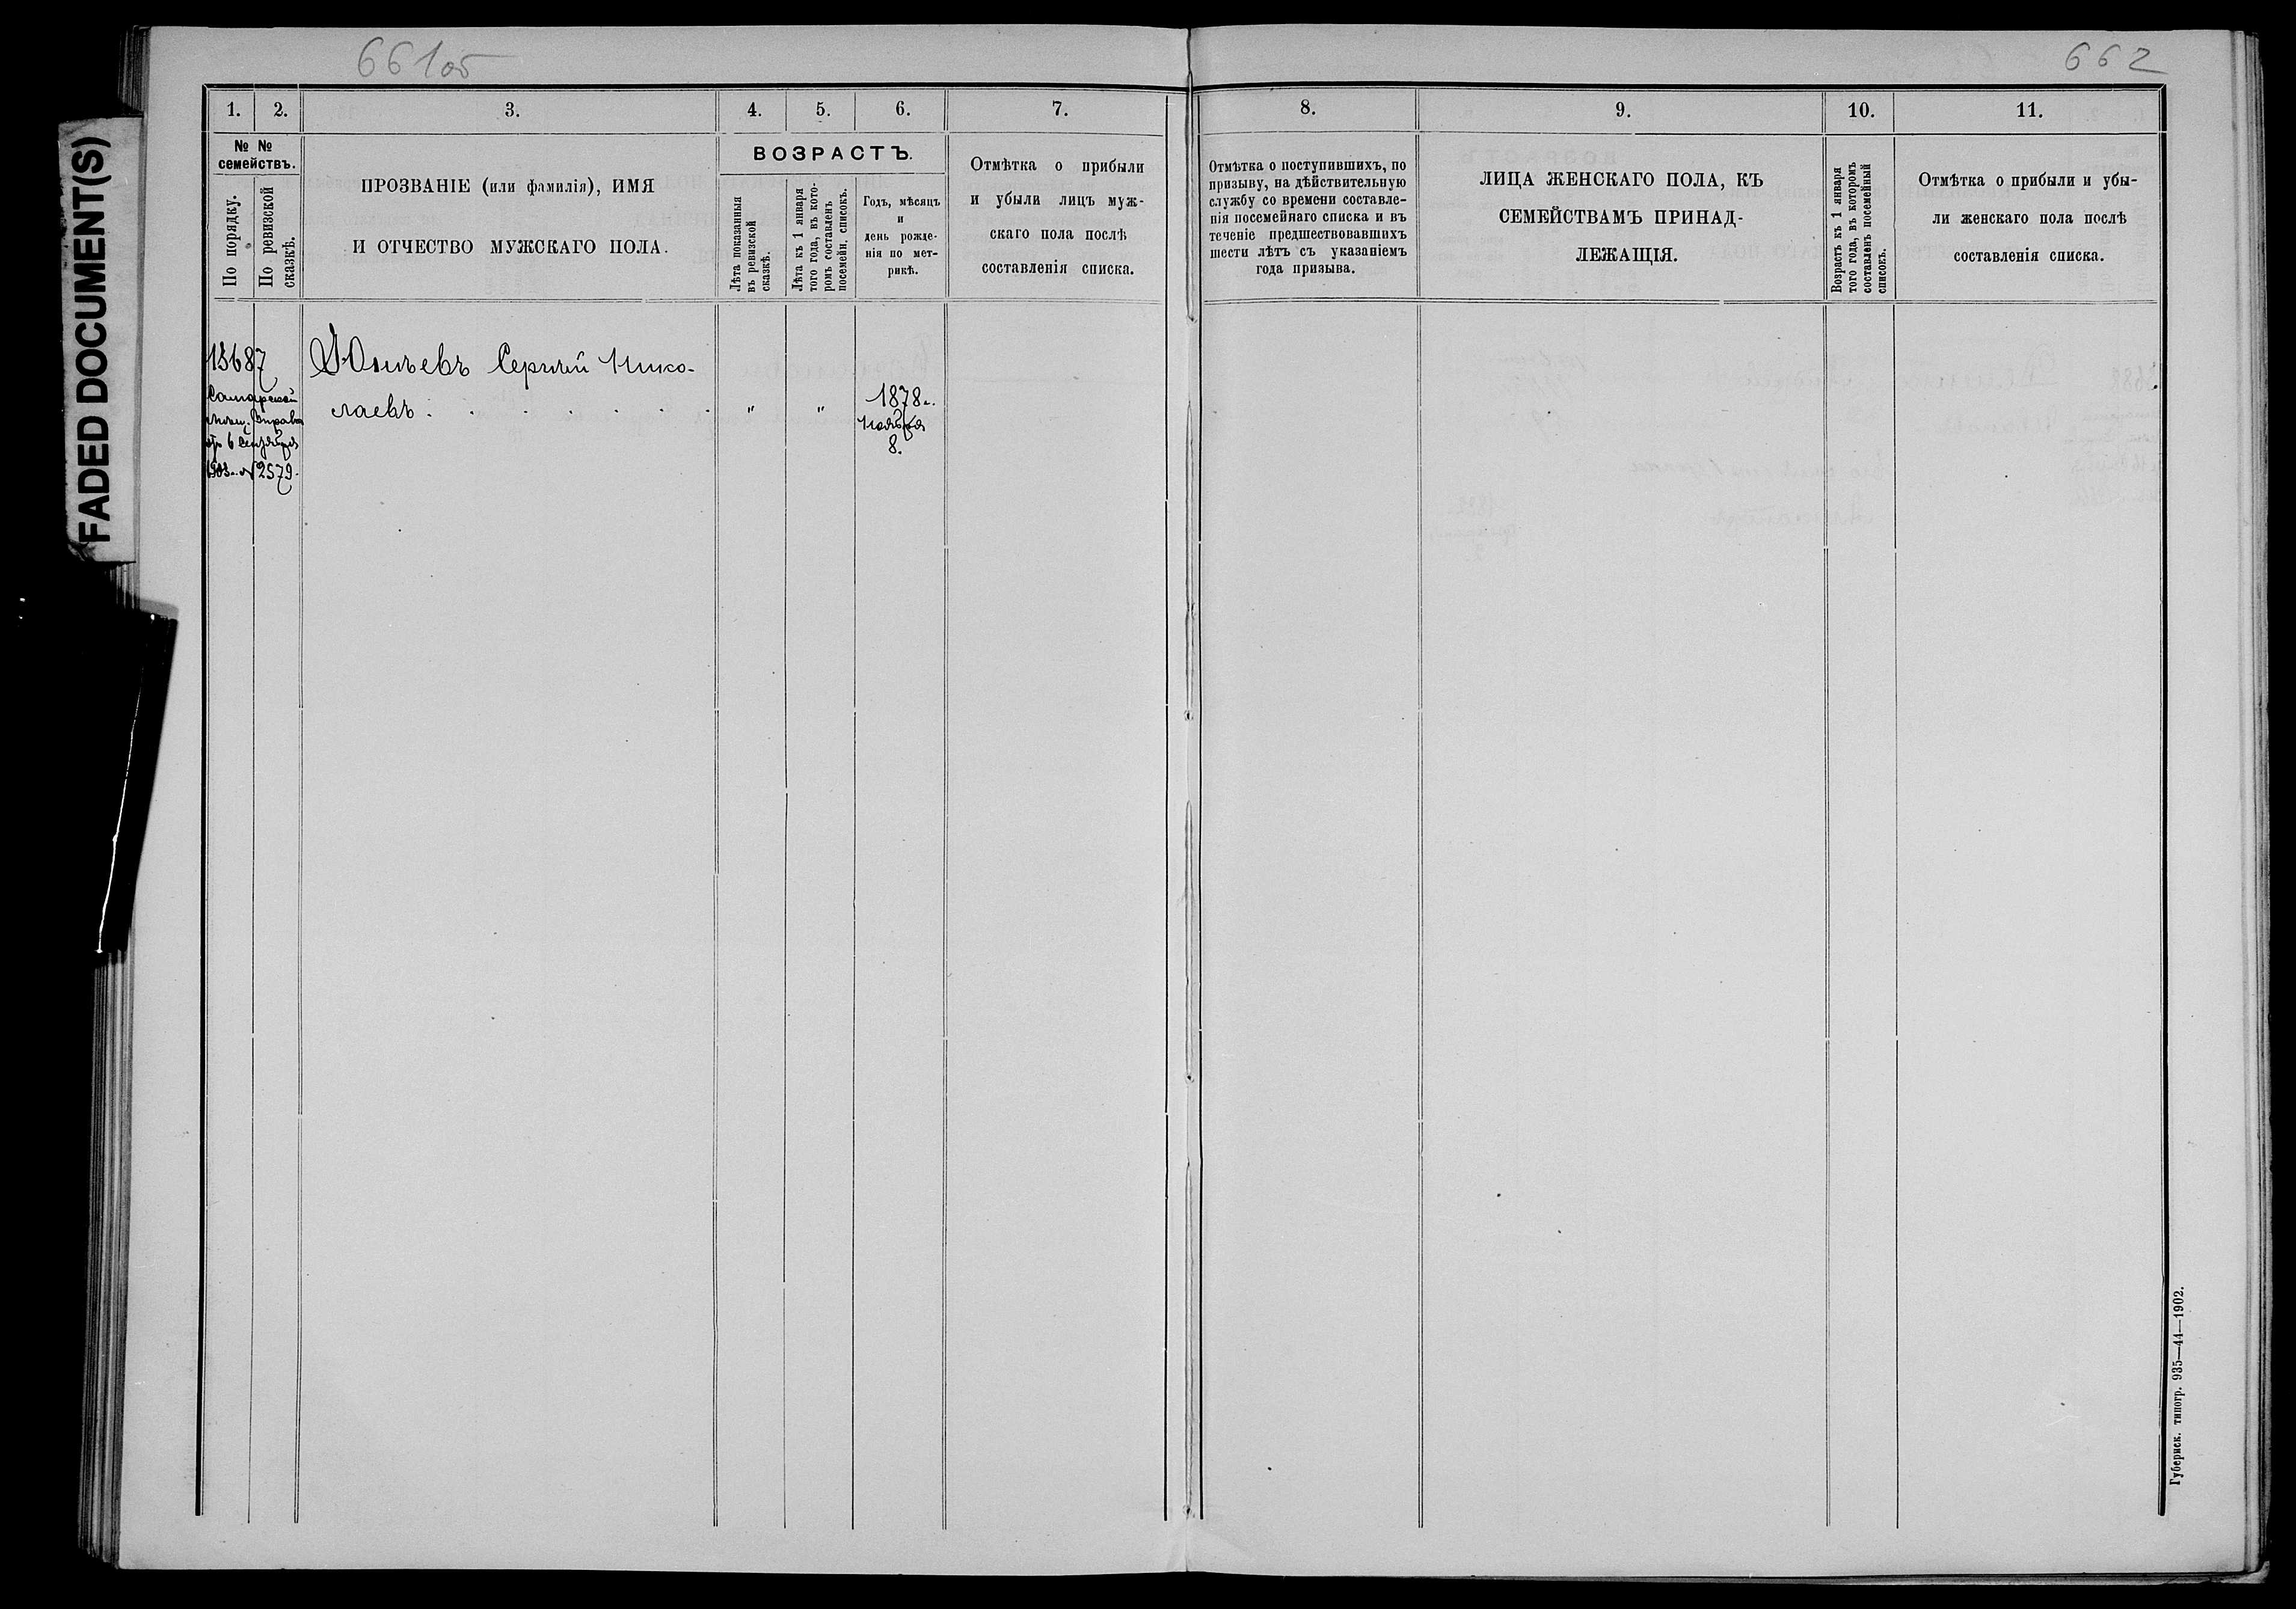 661 об
662
FADED DOCUMENT(S)
1.
2.
3.
4.
5.
6.
7.
8.
9.
10.
11.
№ №
семействъ.
По порядку.
По ревизской
сказкѣ.
ПРОЗВАНІЕ (или фамилія), ИМЯ
И ОТЧЕСТВО МУЖСКАГО ПОЛА.
ВОЗРАСТЪ.
Лѣта показанныя
въ ревизской
сказкѣ.
Лѣта къ 1 января
того года, въ кото-
ромъ составленъ
посемейн. списокъ.
Годъ, мѣсяцъ
и
день рожде-
нія по мет-
рикѣ.
Отмѣтка о прибыли
и убыли лицъ муж-
скаго пола послѣ
составленія списка.
Отмѣтка о поступившихъ, по
призыву, на дѣйствительную
службу со времени составле-
нія посемейнаго списка и въ
теченіе предшествовавшихъ
шести лѣтъ съ указаніемъ
года призыва.
ЛИЦА ЖЕНСКАГО ПОЛА, КЪ
СЕМЕЙСТВАМЪ ПРИНАД-
ЛЕЖАЩІЯ.
Возрастъ къ 1 января
того года, въ которомъ
составленъ посемейный
списокъ.
Отмѣтка о прибыли и убы-
ли женскаго пола послѣ
составленія списка.
13687
Самарской
мѣщ. Управы
отъ 6 Сентября
1903 г. № 2579.
Сергѣй Нико-
лаевъ . . . . . . . " "
1878 г.
Ноября
8.
Губернск. типогр. 935—44—1902.